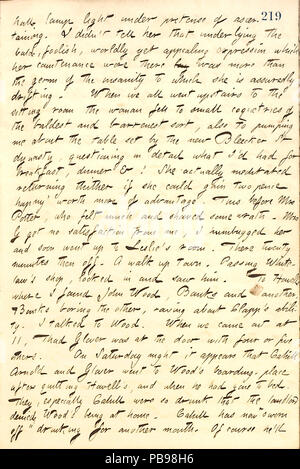 219
hall, lamp light under pretense of ascer-
taining. I didn't tell her that underlying the
bald, foolish, worldly yet appealing expression which
her countenance wore there was more than
the germ of the insanity to which she is assuredly
drifting. When we all went upstairs to the
sitting room the woman fell to small coquetries of
the baldest and barrenest sort, also to pumping
me about the table set by the new Bleecker St
dynasty, questioning in detail what I'd had for
breakfast, dinner &c! She actually meditated
returning thither if she could gain two pence
happny worth more of advantage. This before Mrs
Potter, who felt much and showed some wrath. Mrs
J got no satisfaction from me, I humbugged her
and soon went up to Leslie's room. There twenty
minutes then off. A walk up town. Passing White-
law's shop, looked in and saw him. To Howell's
where I found John Wood, Banks and another,
Banks boring the other, raving about Clapp's abil-
ity. I talked to Wood. When we came out at
11, Thad Glover was at the door with four or five
others. On Saturday night it appears that Cahill
Arnold and Glover went to Wood's boarding place
after quitting Howell's, and when he had gone to bed.
They, especially Cahill were so drunk that the landlord
denied Wood's being at home. Cahill has now "sworn
off" drinking for another month. Of course he'll